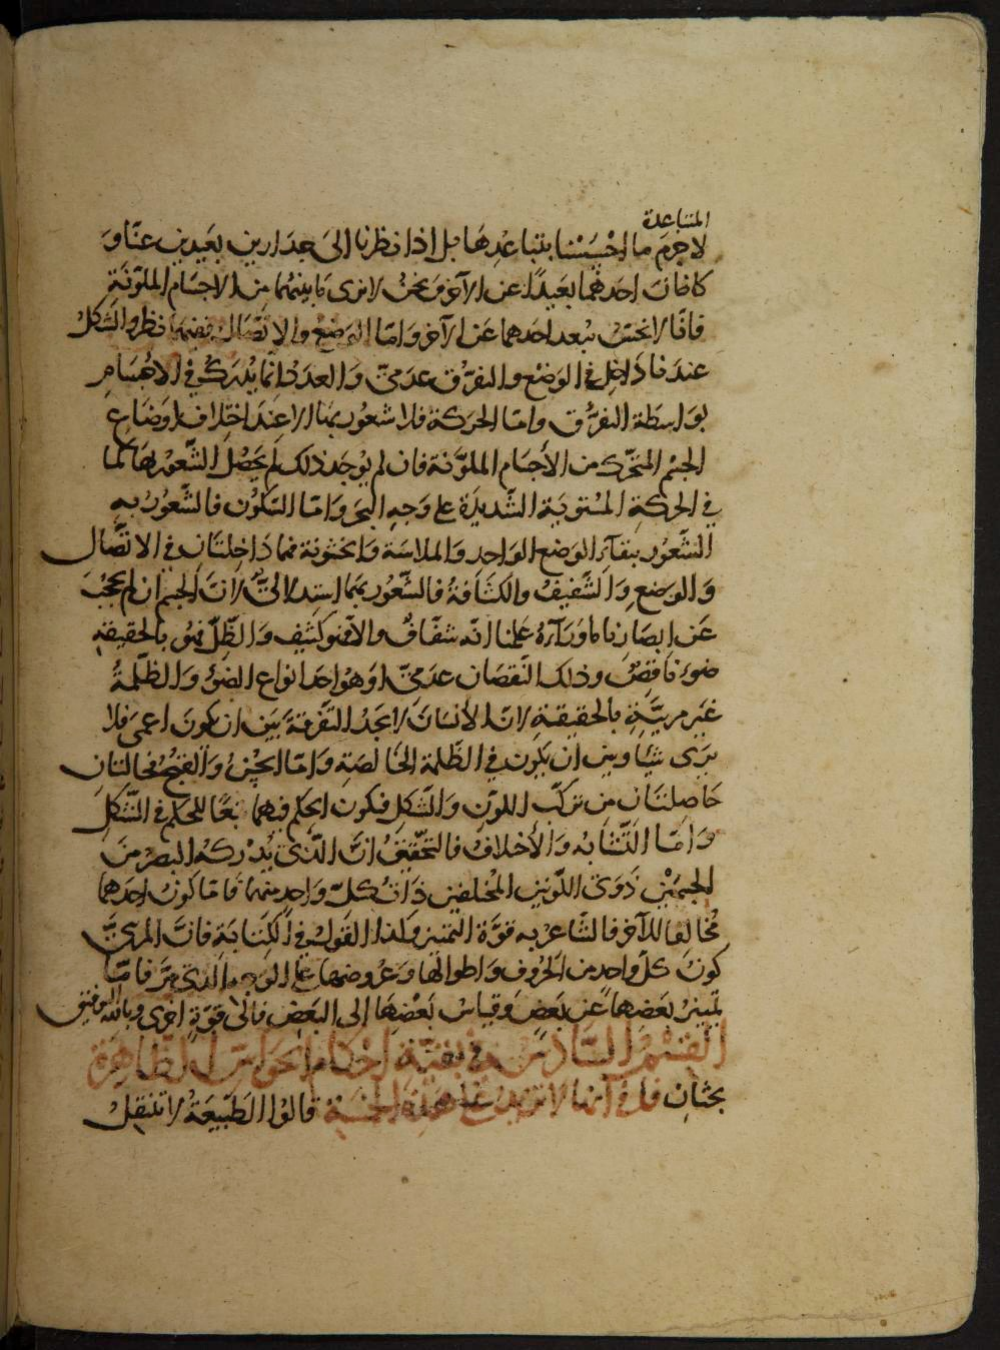 المتباعدة
لا جرم ما احسسنا بتباعدها بل اذا نظرنا الى جدارين بعيدين عنا و
كان احدهما بعيدًا عن الآخر نحن لا نرى ما بينهما من الاجسام الملوّنة
فانّا لا نحسّ ببعد احدهما عن الآخر وامّا الوضع والاتّصال ففيهما نظر والشكل
عندنا داخل في الوضع والتفرّق عدمىّ والعدد انّما يدرك في الاجسام
بواسطة التفرّق وامّا الحركة فلا شعور بها الا عند اختلاف اوضاع
الجسم المتحرّك من الأجسام الملوّنة فان لم يوجد ذلك لم يحصل الشّعور بها كما
في الحركة المستوية الشّديدة على وجه وامّا السّكون فالشّعور به
الشعور ببقآء الوضع الواحد والملاسة والخشونة فهما داخلتان في الاتّصال
والوضع والشّفيف والكثافة فالشّعور بهما استدلالىّ لانّ الجسم ان لم يحجب
عن ابصارنا ما ورآءه علمنا انّه شفّاف والا فهو كثيف والظّلّ فهو بالحقيقة
ضوء ناقص وذلك النّقصان عدمىّ او هو احد انواع الضّوء والظّلمة
غير مرئيّة بالحقيقة لانّ الأنسان لا يجد التّفرقة بين ان يكون اعمى فلا
يرى شيئًا وبين ان يكون في الظّلمة الخالصة وامّا الحسن والقبح فحالتان
حاصلتان من تركّب اللون والشّكل فيكون الحكم فيهما تبعًا للحكم في الشّكل
وامّا التّشابه والأختلاف فالتحقيق انّ الّذى يدركه البصر من
الجسمين ذوى اللّونين المختلفين ذات كلّ واحد منهما فامّا كون احدهما
مخالفا للآخر فالشّاعر به قوّة التّمييز وكذا القول في الكتابة فانّ المرئىّ
كون كلّ واحد من الحروف واطوالها وعروضها على الوجه الذى مرّ فامّا
تمييز بعضها عن بعض وقياس بعضها الى البعض فالى قوّة اخرى وبالله التوفيق
القسم السّادس في بقيّة احكام الحواسّ الظّاهرة
بحثان فل في انها لا تزيد على هذه الخمسة قالوا الطّبيعة لا تنتقل